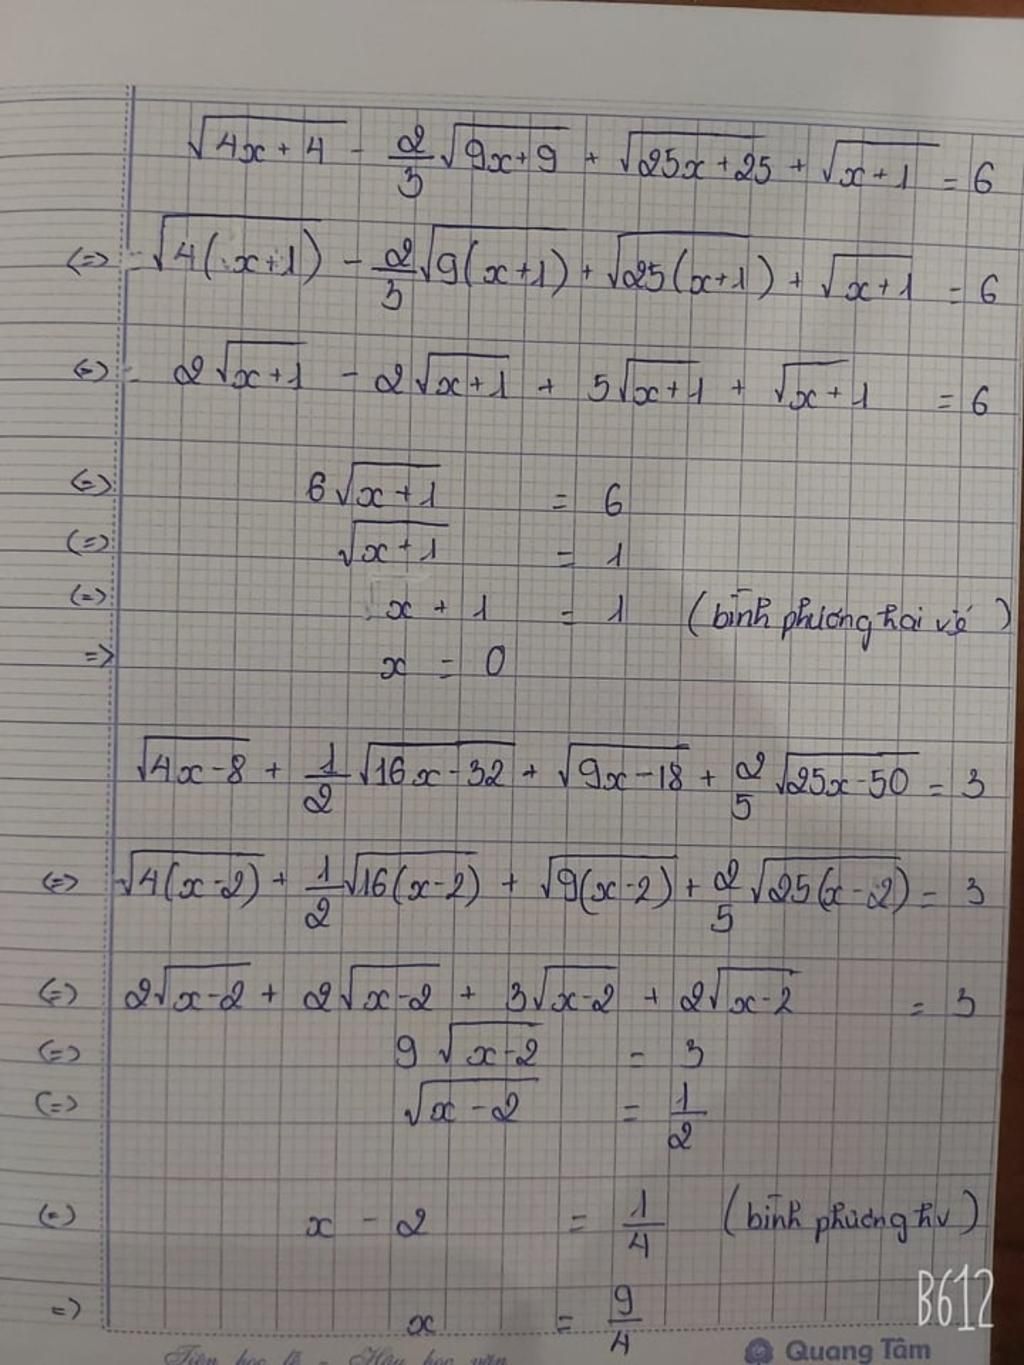 √(4x+4) - 2/3 √(9x+9) + √(25x+25) + √(x+1) = 6
(=) √4(x+1) - 2/3 √9(x+1) + √25(x+1) + √(x+1) = 6
(=) 2√(x+1) - 2√(x+1) + 5√(x+1) + √(x+1) = 6
(=) 6√(x+1) = 6
(=) √(x+1) = 1
(=) x + 1 = 1 (bình phương hai vế)
=> x = 0
√(4x-8) + 1/2 √(16x-32) + √(9x-18) + 2/5 √(25x-50) = 3
(=) √4(x-2) + 1/2 √16(x-2) + √9(x-2) + 2/5 √25(x-2) = 3
(=) 2√(x-2) + 2√(x-2) + 3√(x-2) + 2√(x-2) = 3
(=) 9√(x-2) = 3
(=) √(x-2) = 1/2
(=) x - 2 = 1/4 (bình phương hv)
=> x = 9/4
B612
Tiên học lễ - Hậu học văn
Quang Tâm